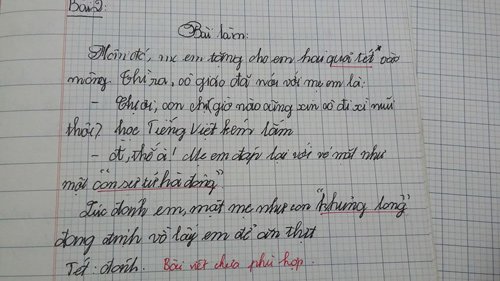 Bài 2:
Bài làm:
Hôm đó, mẹ em tặng cho em hai quả tét vào
mông. Thì ra, cô giáo đã nói với mẹ em là:
- Chị ơi, con chị giờ nào cũng xin cô đi xì mũi
thôi? học Tiếng Việt kém lắm
- Ồ, thế à! Mẹ em đáp lại với vẻ mặt như
một "con sư tử hà đông"
Lúc đánh em, mặt mẹ như con "khủng long"
đang định vồ lấy em để ăn thịt
Tét: đánh. Bài viết chưa phù hợp.